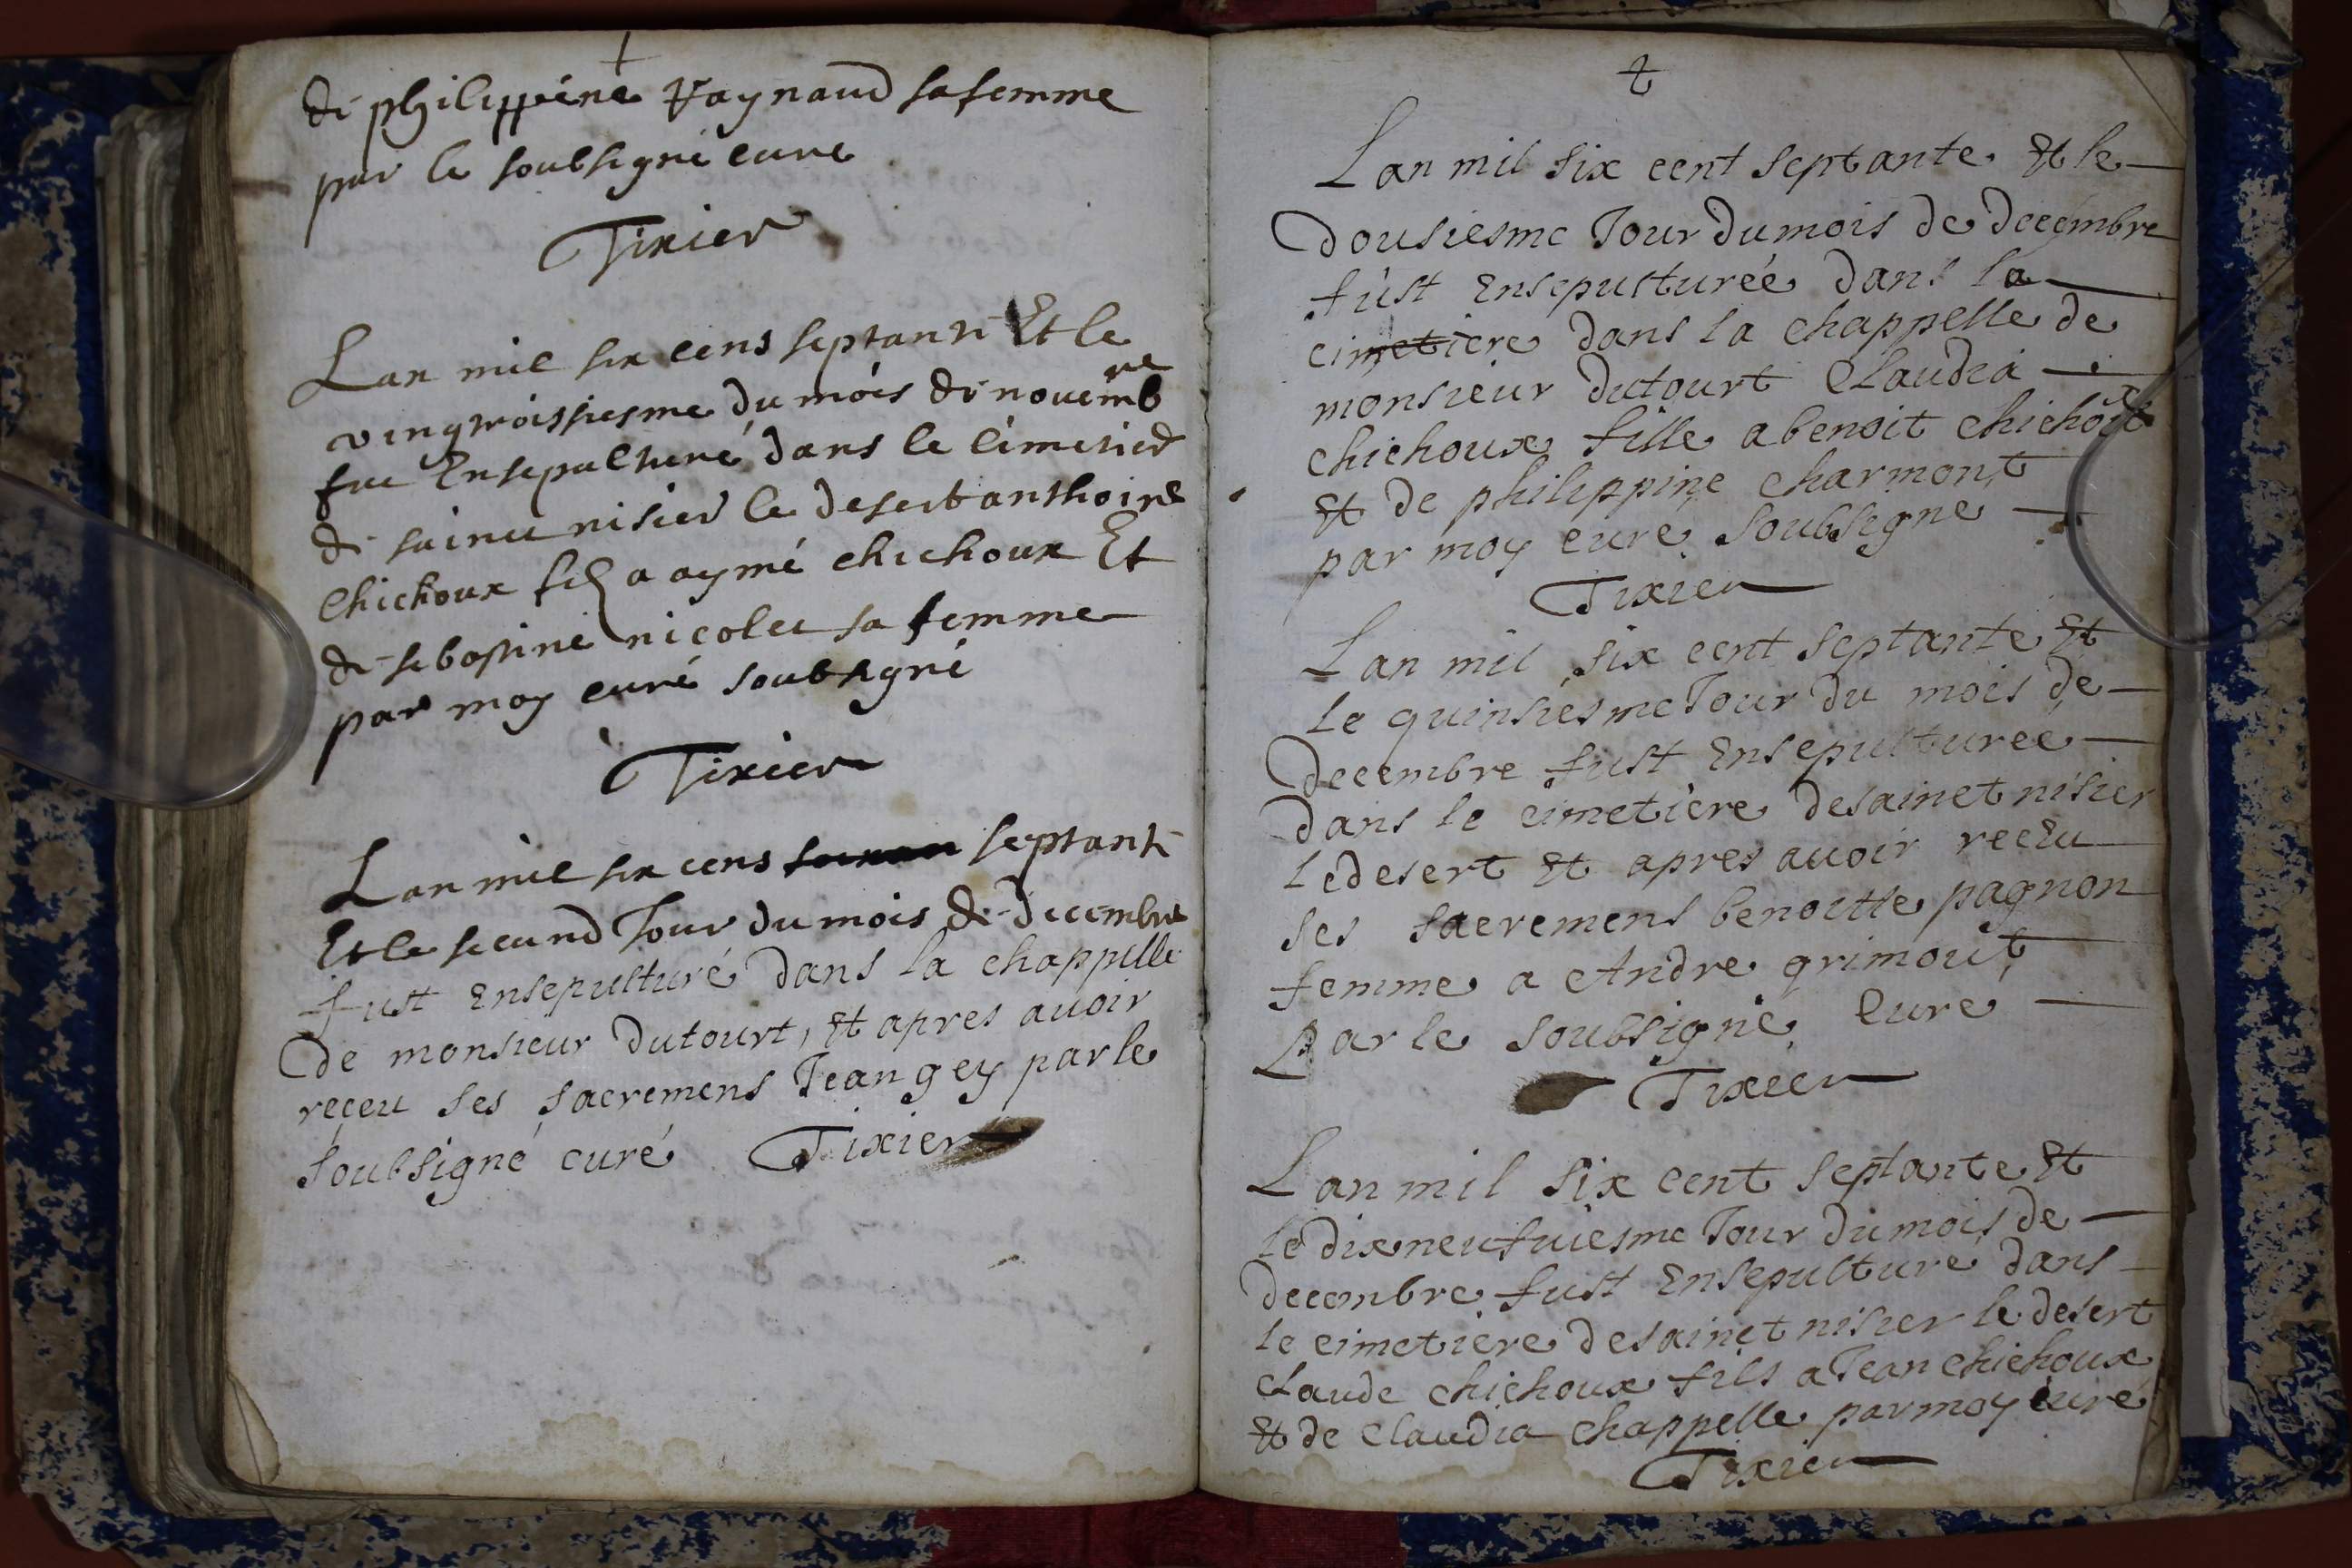 de philippine Raynaud sa femme
par le soubsigné curé
Tixier
Lan mil six cens septante Et le
vingtroissiesme du mois de novembre
fut Ensepulturé dans le cimetier
de sainct nisier le desert anthoine
Chichoux filz a aymé chichoux Et
de sebastine nicolet sa femme
par moy curé soubsigné
Tixier
Lan mil six cens septante
Et le second Jour du mois de decembre
fust Ensepulturé dans la chappelle
de monsieur dutourt, Et apres auoir
reçeu ses sacremens Jean gey par le
soubsigné curé Tixier
Lan mil six cent septante Et le
dousiesme Jour du mois de decembre
fust Ensepulturée dans la
cimetiere dans la chappelle de
monsieur dutourt Claudia
chichoux fille a benoit chichoux
Et de philippine charmont
par moy curé soubsigné
Tixier
Lan mil six cent septante Et
le quinsiesme Jour du mois de
decembre fust Ensepulturée
dans le cimetiere de sainct nisier
le desert Et apres auoir recêu
ses sacremens benoitte pagnon
femme a Andre grimout
Par le soubsigné Curé
Tixier
Lan mil six cent septante Et
le dixneufuiesme Jour du mois de
decembre fust Ensepulturé dans
le cimetiere de sainct nisier le desert
claude chichoux fils a Jean chichoux
Et de claudia chappelle par moy curé
Tixier